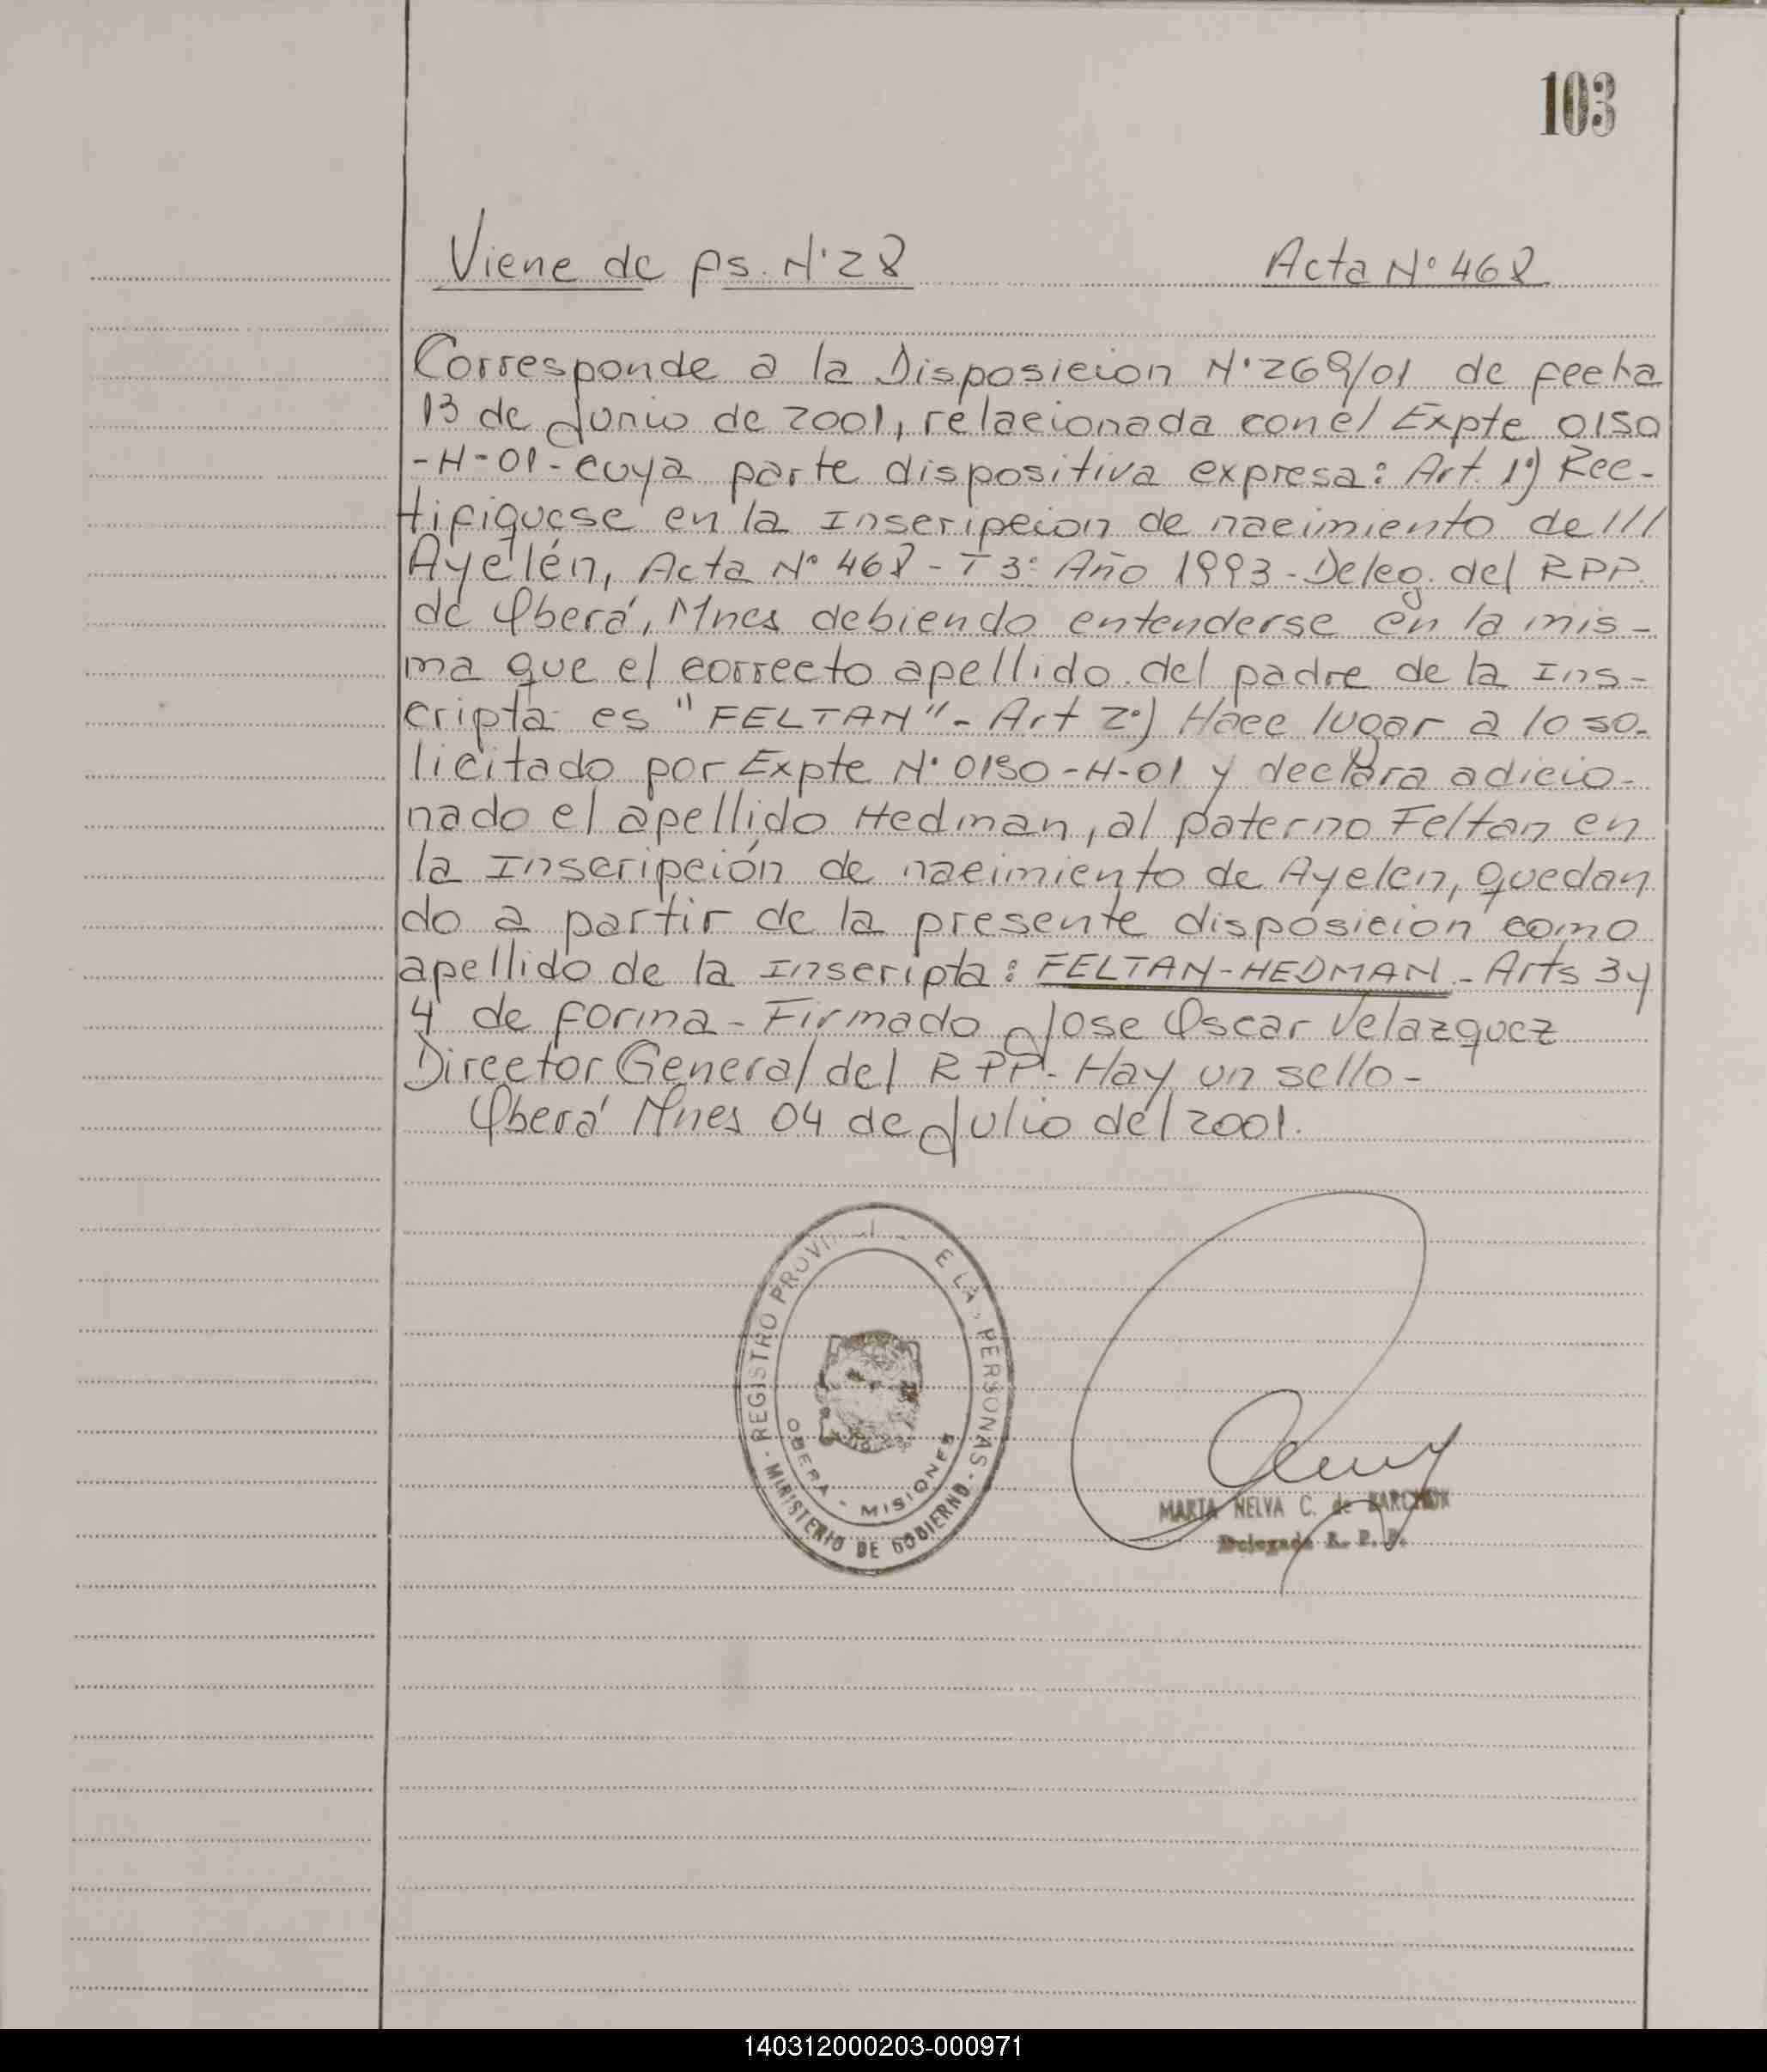 103
Viene de fs. N° 28 Acta N° 468
Corresponde a la Disposicion N° 269/01 de fecha
13 de Junio de 2001, relacionada con el Expte 0150
-H-01- cuya parte dispositiva expresa: Art. 1°) Rec-
tifiquese en la Inscripcion de nacimiento de ///
Ayelén, Acta N° 468 - T 3° Año 1993 - Deleg. del RPP.
de Oberá, Mnes debiendo entenderse en la mis-
ma que el correcto apellido del padre de la Ins-
cripta es "FELTAN" - Art 2°) Hace lugar a lo so-
licitado por Expte N° 0150-H-01 y declara adicio-
nado el apellido Hedman, al paterno Feltan en
la Inscripción de nacimiento de Ayelen, quedan
do a partir de la presente disposicion como
apellido de la Inscripta: FELTAN-HEDMAN - Arts 3 y
4 de forma - Firmado Jose Oscar Velazquez
Director General del RPP - Hay un sello -
Oberá Mnes 04 de Julio del 2001.
REGISTRO PROVI E LAS PERSONAS
OBERA - MISIONES
MINISTERIO DE GOBIERNO
MARTA NELVA C. de
Delegada R. P. P.
140312000203-000971